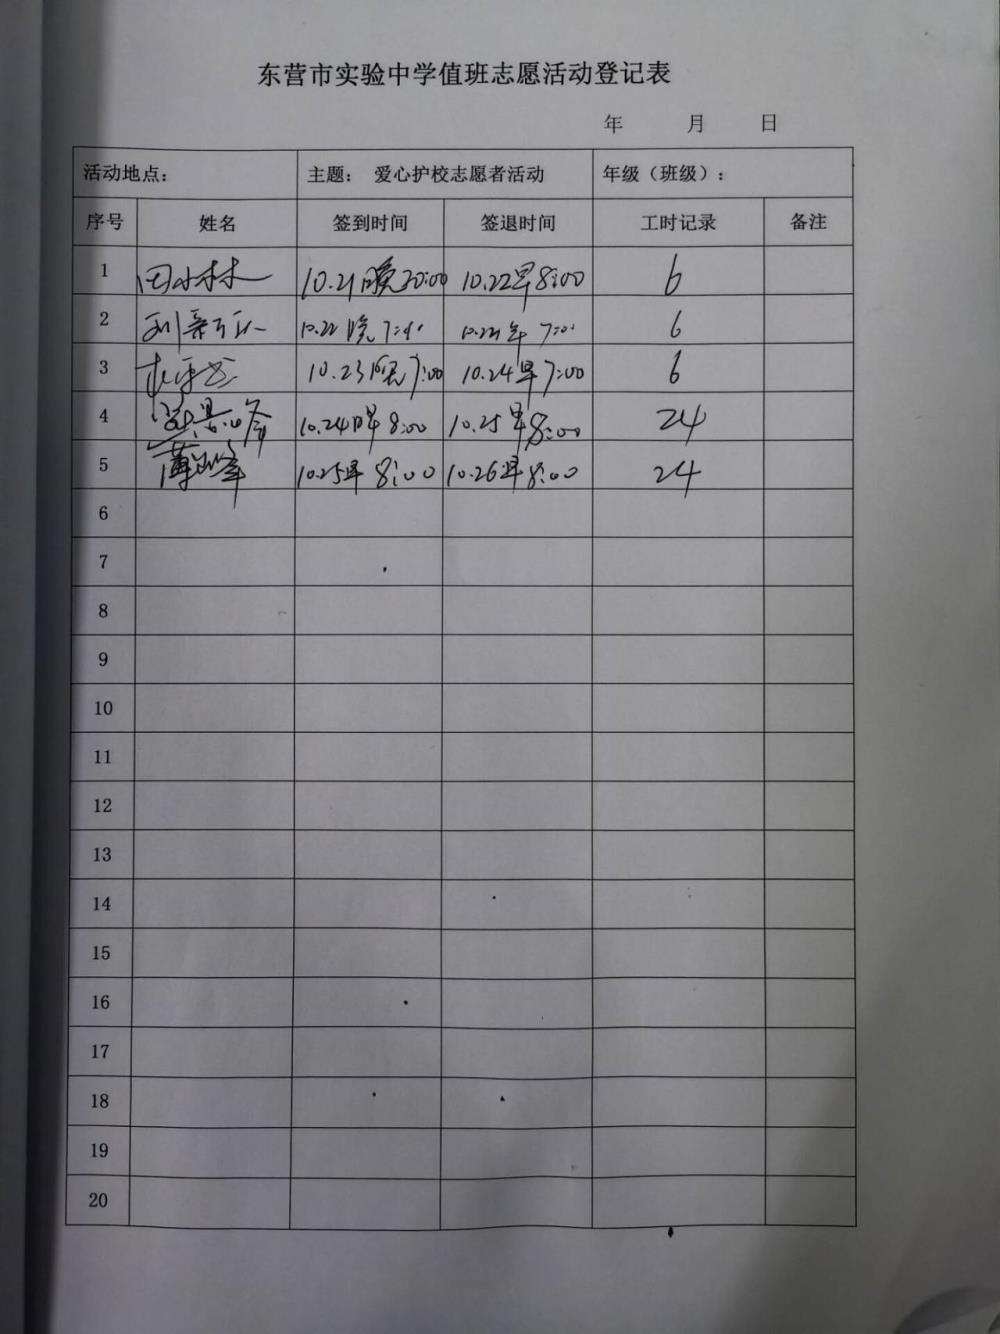 东营市实验中学值班志愿活动登记表
年 月 日
活动地点： 主题： 爱心护校志愿者活动 年级（班级）：
序号 姓名 签到时间 签退时间 工时记录 备注
1 田小林 10.21晚20:00 10.22早8:00 6
2 10.22晚 7:00 6
3 10.23晚7:00 10.24早7:00 6
4 10.24早8:00 10.25早8:00 24
5 10.25早 8:00 10.26早8:00 24
6
7
8
9
10
11
12
13
14
15
16
17
18
19
20